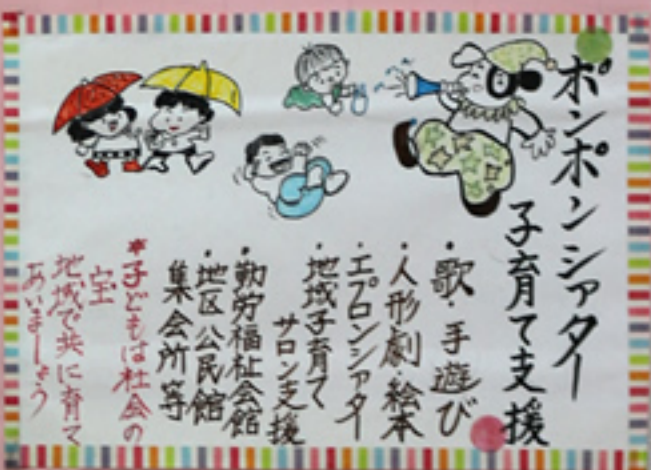 ポンポンシアター
子育て支援
・歌・手遊び
・人形劇・絵本
・エプロンシアター
・地域子育て
サロン支援
・勤労福祉会館
・地区公民館
集会所等
*子どもは社会の
宝
地域で共に育て
あいましょう